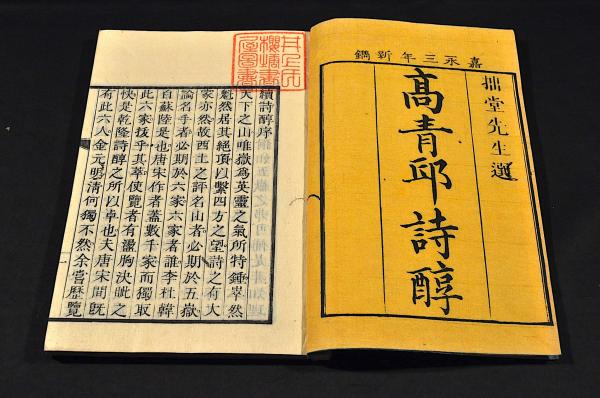 嘉永三年新鐫
拙堂先生選
高青邱詩醇
井上氏
櫻塘書
屋圖書
續詩醇序
天下之山唯嶽爲英靈之氣所特鍾崒然
魁然居其絶頂以繫四方之望詩之有大
家亦然故西土之評名山者必期於五嶽
論名手者必期於六家六家者誰李杜韓
白蘇陸是也唐宋作者蓋數千家而獨取
此六家拔乎其萃使覽者有盪胸決眦之
快是乾隆詩醇之所以卓也夫唐宋間既
有此六人金元明清何獨不然余嘗歷覽